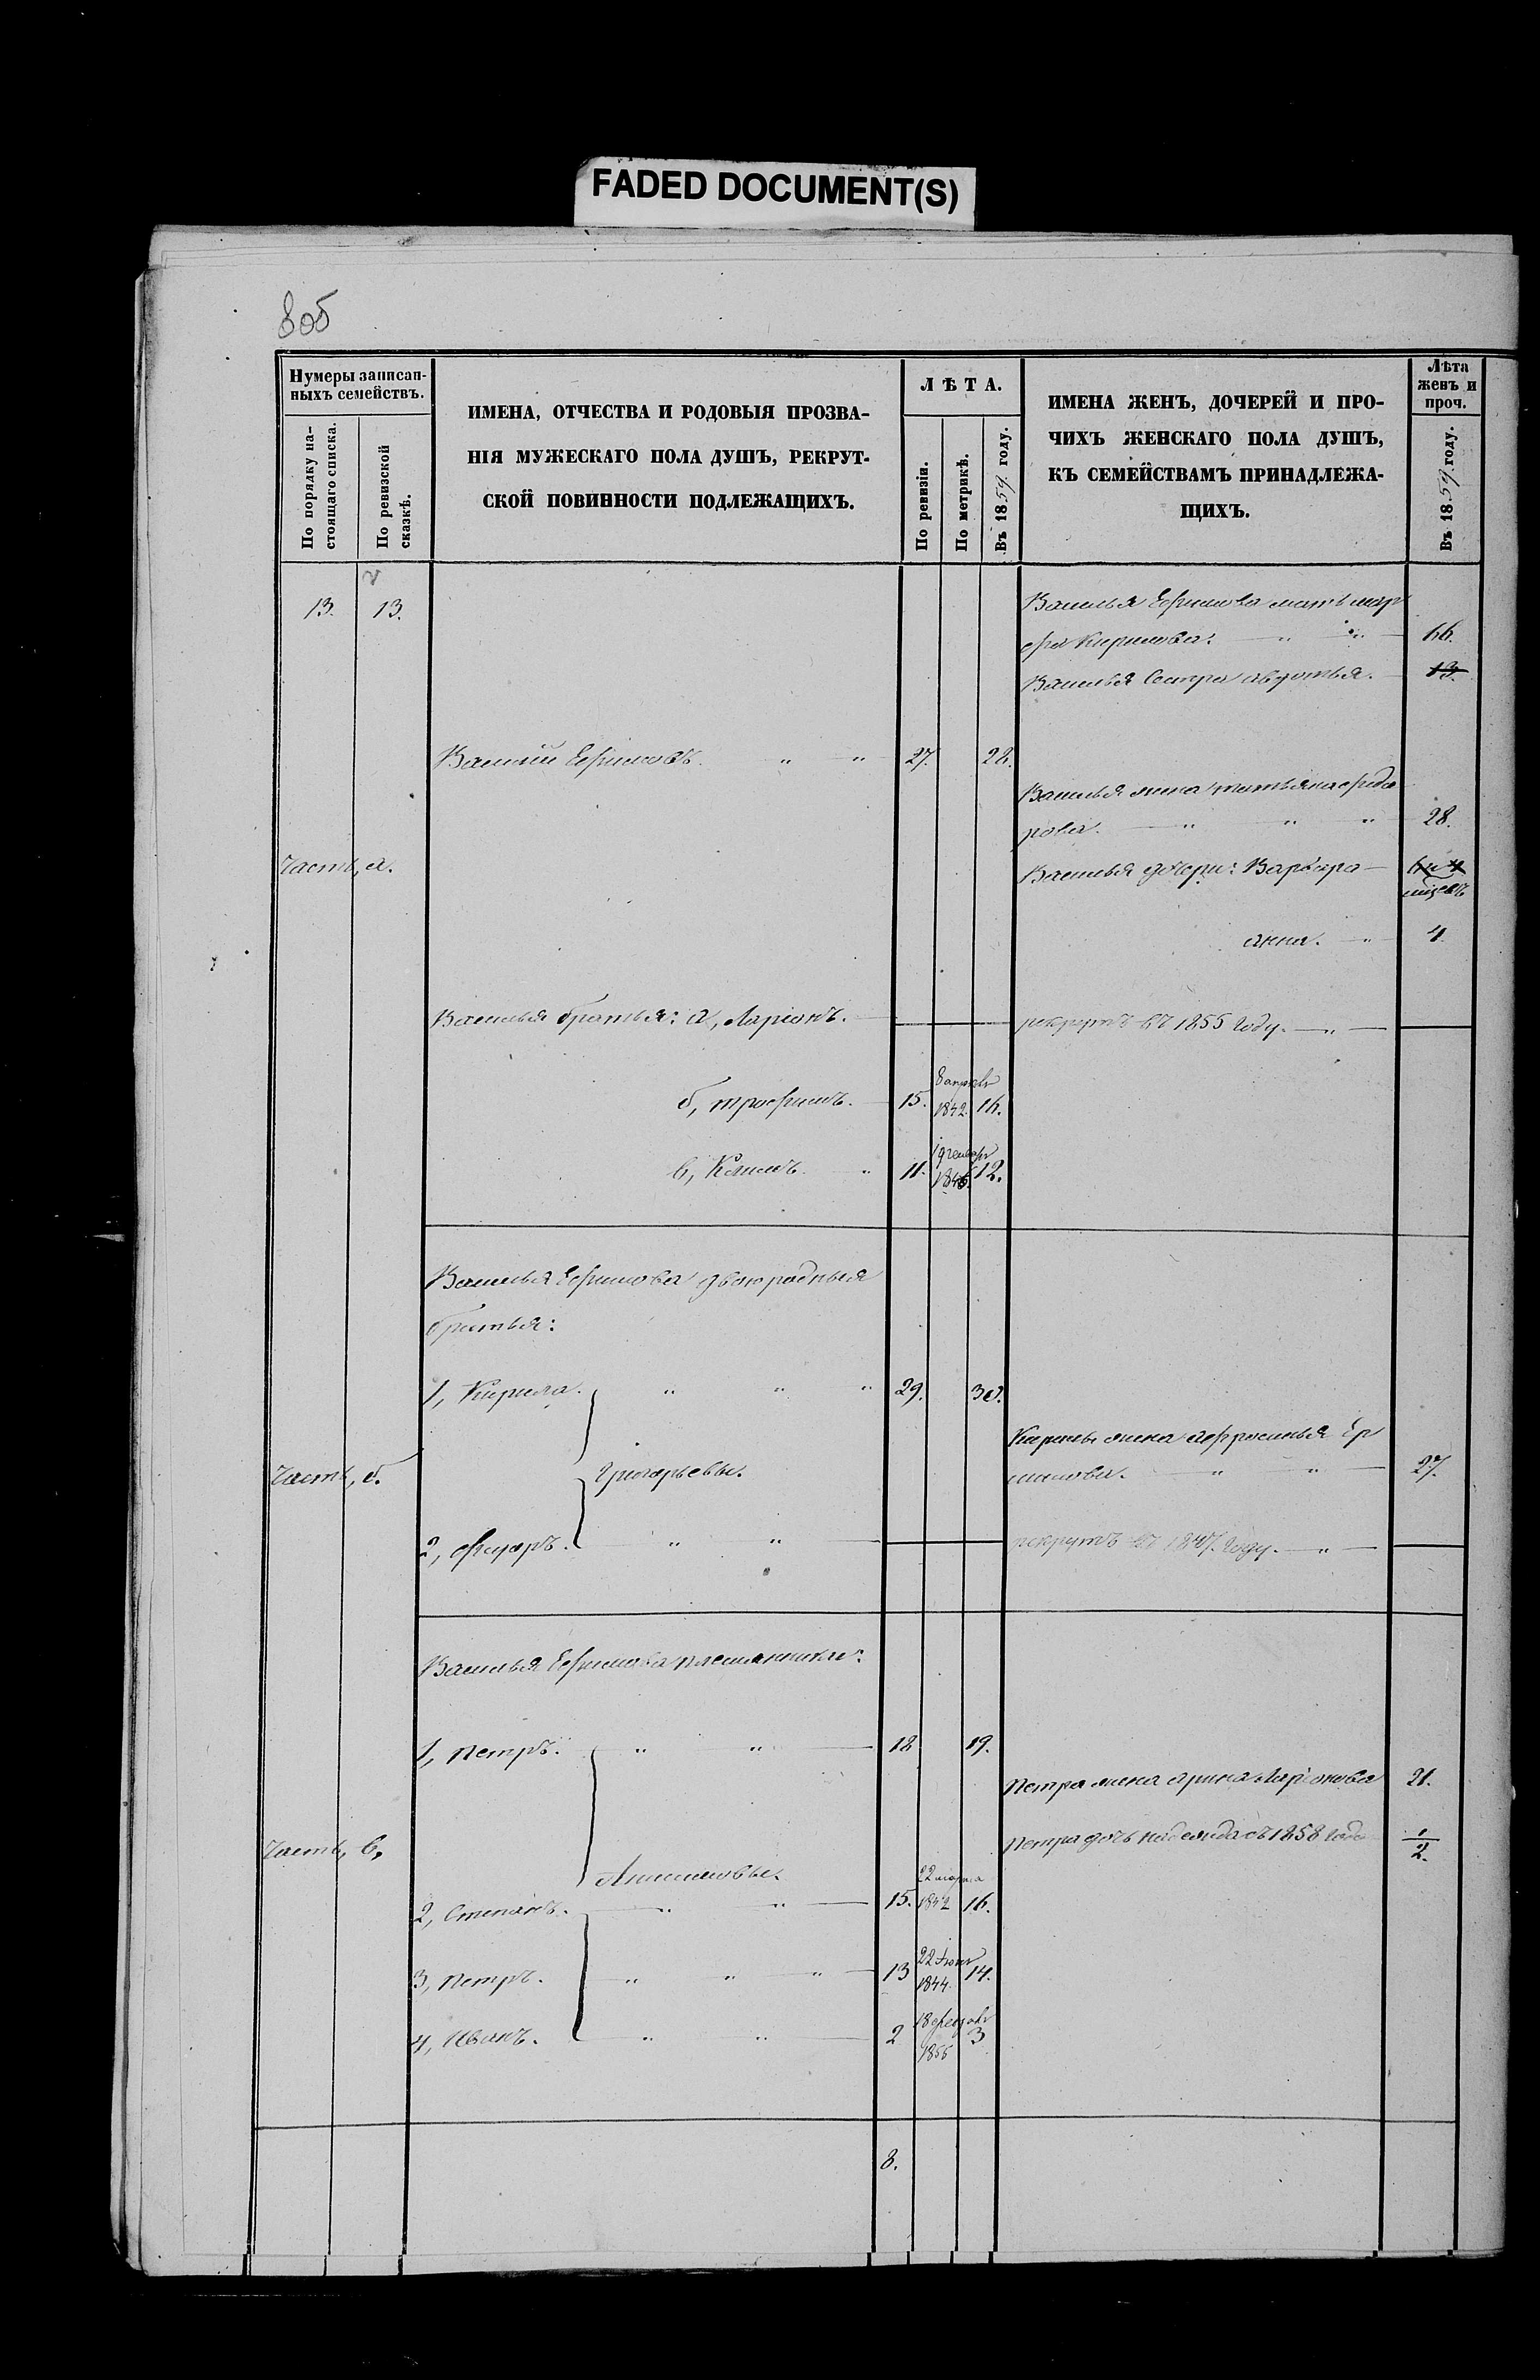 FADED DOCUMENT(S)
8об
Нумеры записан-
ныхъ семействъ.
По порядку на-
стоящаго списка.
По ревизской
сказкѣ.
ИМЕНА, ОТЧЕСТВА И РОДОВЫЯ ПРОЗВА-
НІЯ МУЖЕСКАГО ПОЛА ДУШЪ, РЕКРУТ-
СКОЙ ПОВИННОСТИ ПОДЛЕЖАЩИХЪ.
ЛѢТА.
По ревизіи.
По метрикѣ.
Въ 1859 году.
ИМЕНА ЖЕНЪ, ДОЧЕРЕЙ И ПРО-
ЧИХЪ ЖЕНСКАГО ПОЛА ДУШЪ,
КЪ СЕМЕЙСТВАМЪ ПРИНАДЛЕЖА-
ЩИХЪ.
Лѣта
женъ и
проч.
Въ 1859 году.
13. 13.
Василья Ефимова мать мар
фа Кирилова. " " 66.
Василья Сестра авдотья. 13.
Василій Ефимовъ. " " 27. 28.
Василья жена татьяна федо
рова. " " " 28.
Часть, а.
Василья дочери: Варвара
анна. " 4.
Василья братья: а, Ларіонъ.
рекрутъ въ 1855 году. "
б, трофимъ. 15. 8 апреля 1842. 16.
в, Климъ. " 11. 1846. 12.
Василья Ефимова двоюродныя
братья:
1, Кирила. " " " 29. 30.
Кирилы жена афросинья Ер
милова. " " 27.
Часть, б.
Григорьевы.
2, федоръ. " "
рекрутъ въ 1847. году. "
Василья Ефимова племянники:
1, петръ. " " 18 19.
петра жена арина Ларіонова 21.
петра дочь надежда съ 1858 года 1/2.
Часть, в,
Анисимовы.
2, Степанъ. " " 15. 22 марта 1842 16.
3, петръ. " " " 13 22 1844. 14.
4, Иванъ. " " 2 18 1856 3
8.